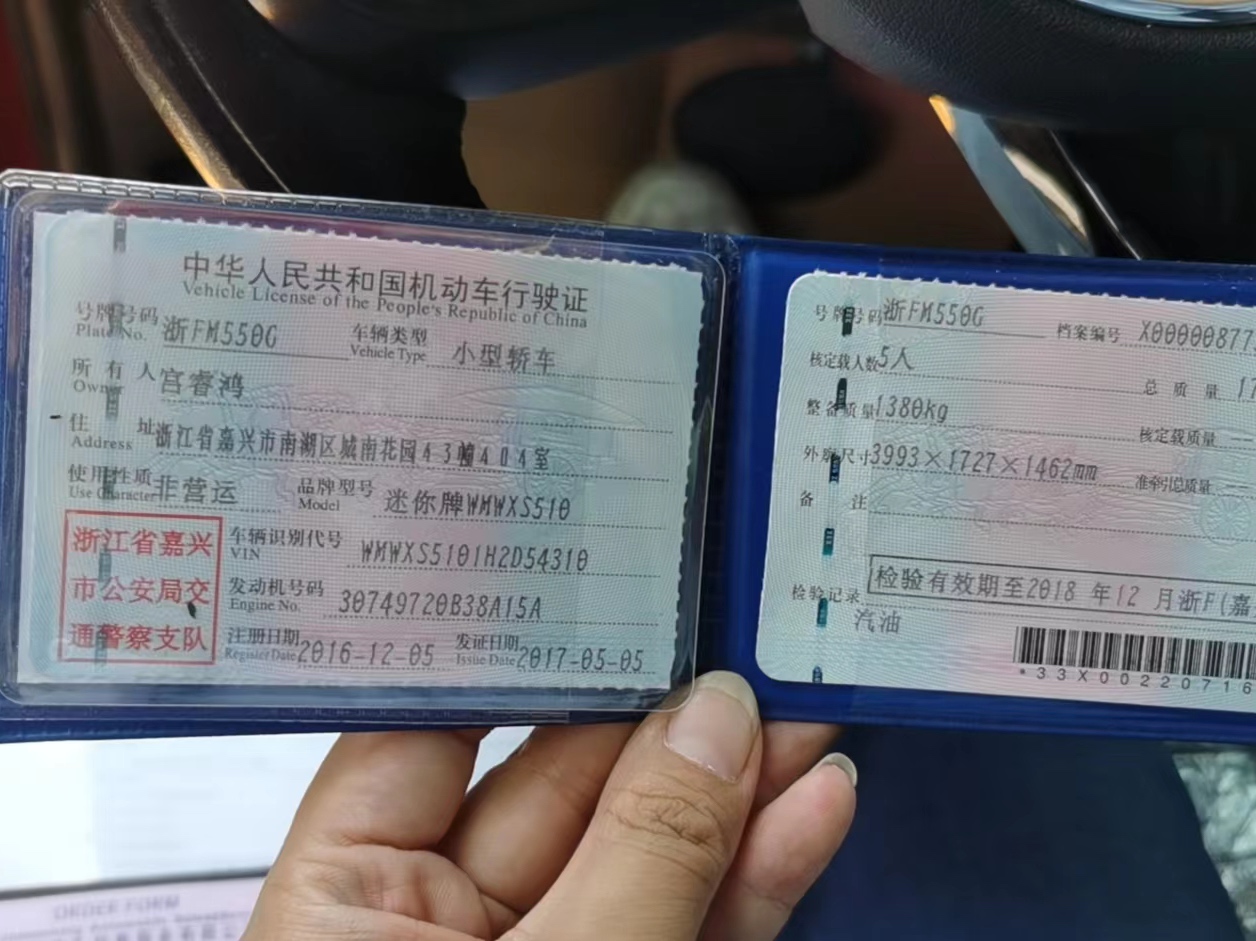 中华人民共和国机动车行驶证
Vehicle License of the People's Republic of China
号牌号码 浙FM550G 车辆类型 小型轿车
Plate No. Vehicle Type
所有人 宫睿鸿
Owner
住址 浙江省嘉兴市南湖区城南花园43幢404室
Address
使用性质 非营运 品牌型号 迷你牌WMWXS510
Use Character Model
浙江省嘉兴市公安局交通警察支队
车辆识别代号 WMWXS5101H2D54310
VIN
发动机号码 30749720B38A15A
Engine No.
注册日期 2016-12-05 发证日期 2017-05-05
Register Date Issue Date
号牌号码 浙FM550G 档案编号 X00000877
核定载人数 5人 总质量
整备质量 1380kg 核定载质量
外廓尺寸 3993×1727×1462mm 准牵引总质量
备注
检验有效期至2018 年12 月浙F(嘉
检验记录
汽油
*33X00220716
ORDER FORM